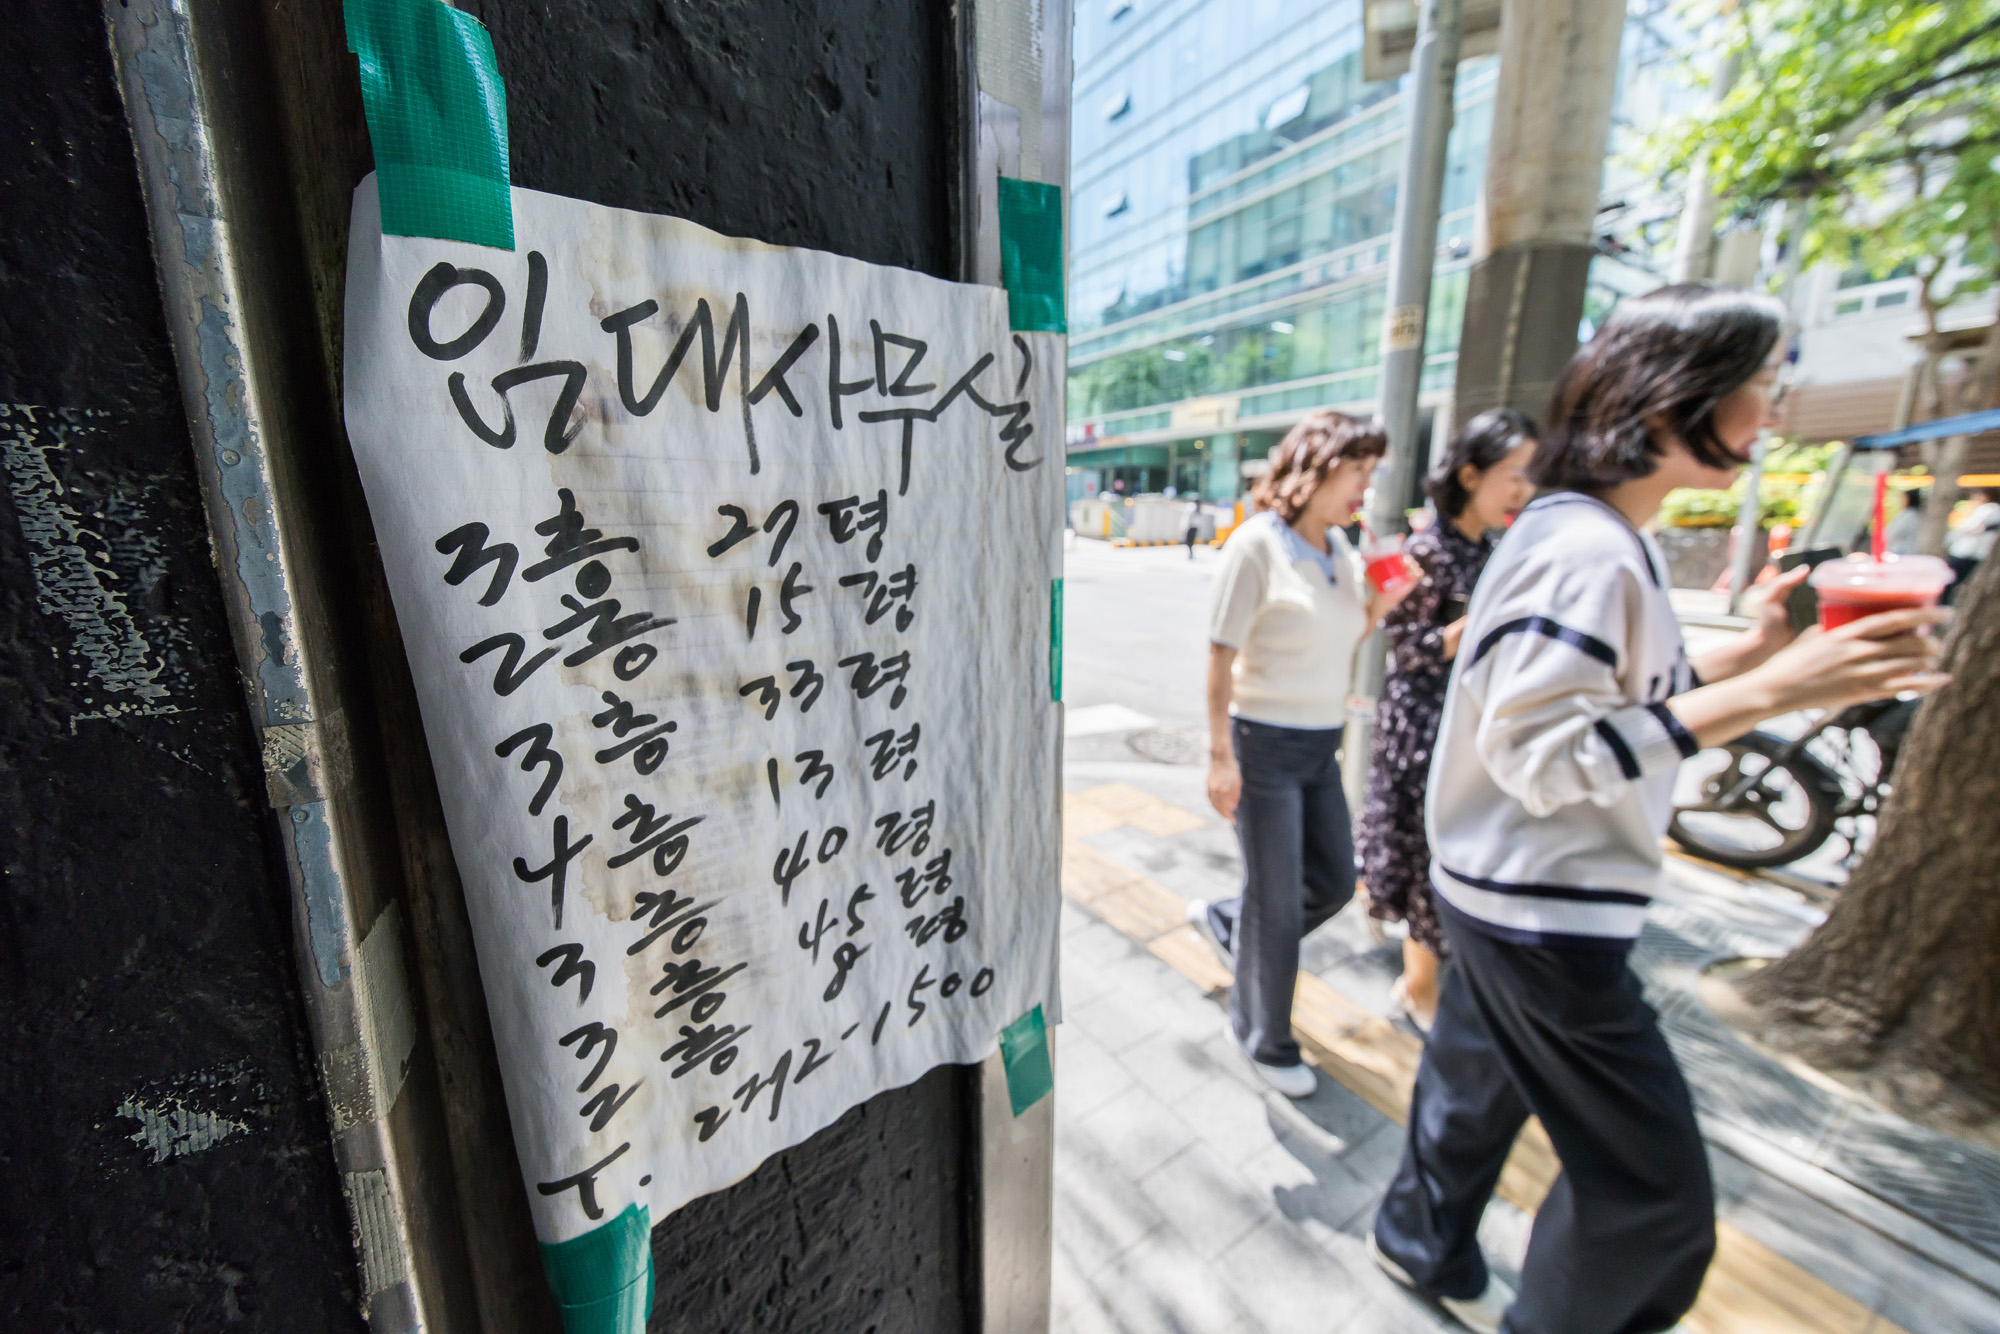 임대사무실
3층 27평
2층 15평
3층 33평
4층 13평
3층 40평
3층 45평
2층 8평
T. 2272-1500